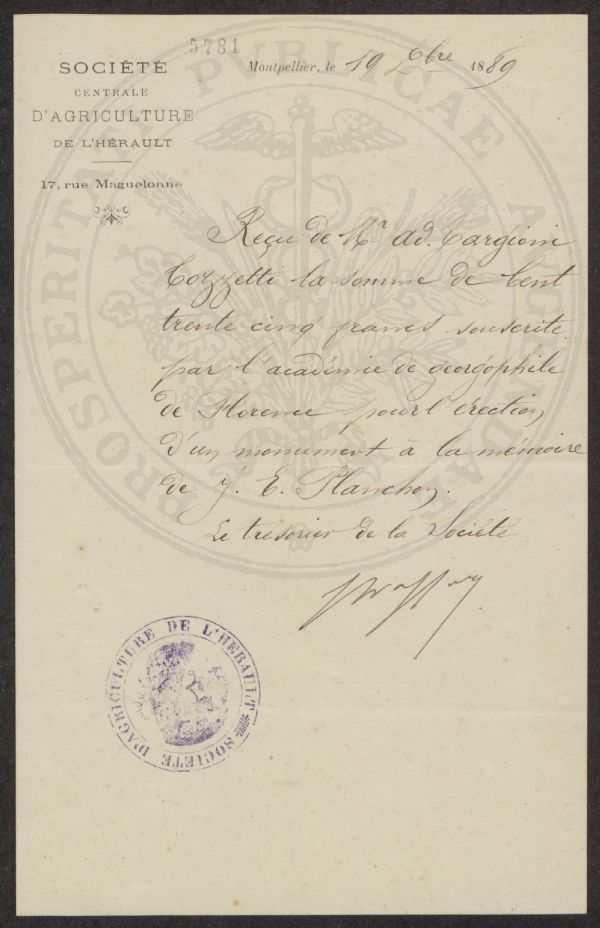 5781
SOCIÉTÉ
CENTRALE
D'AGRICULTURE
DE L'HÉRAULT
17, rue Maguelonne
Montpellier, le 19 Xbre 1889
PROSPERITATI PUBLICAE AUGENDAE
Reçu de Mr ad. Targioni
Tozzetti la somme de Cent
trente cinq francs souscrite
par l'académie de georgophile
de Florence pour l'érection
d'un monument à la mémoire
de J. E. Planchon.
Le trésorier de la Société
SOCIÉTÉ D'AGRICULTURE DE L'HÉRAULT